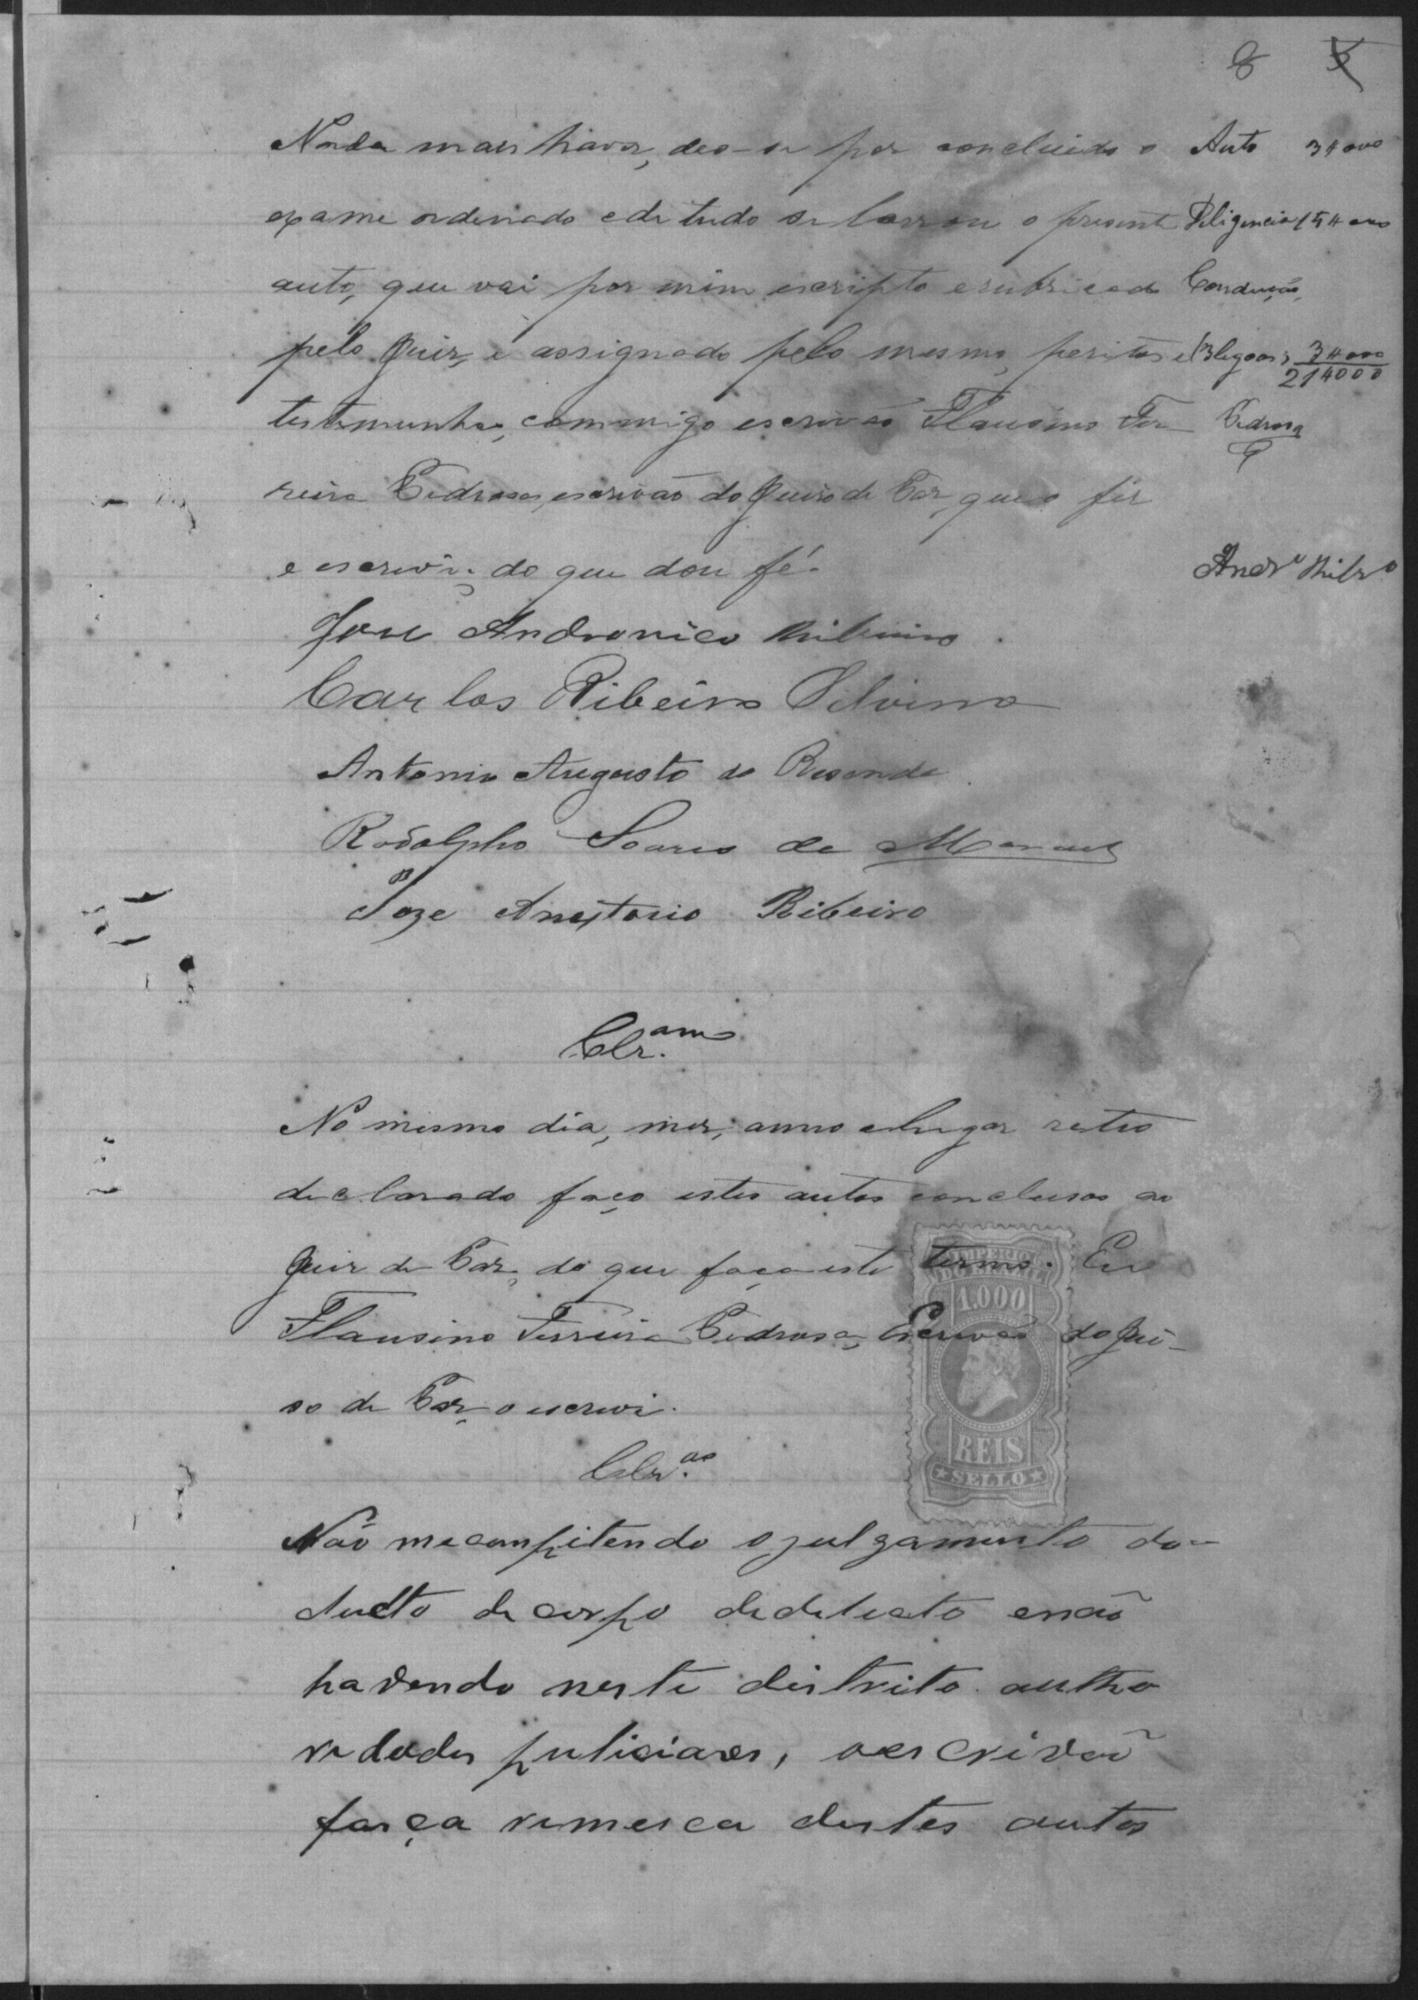 8 5
Nada mais havor, deo-se por concluido o
exame ordenado e de tudo se lavrou o presente
auto, que vai por mim escripto e rubricado
pelo Juiz, e assignado pelo mesmo, peritos e
testemunhas, commigo escrivão Flausino Fer
reira Pedrosa, escrivão do Juiso de Paz, que o fiz
e escrevi; do que dou fé.
Auto 3#000
Diligencia 15#000
Condução,
3 legoas 3#000
21#000
Pedrosa
Andrº Ribrº
Jose Andronico Ribeiro.
Carlos Ribeiro Silvino
Antonio Augusto de Resende
Rodolpho Soares de
Joze Anastacio Ribeiro
Clz.am
No mesmo dia, mez, anno e lugar retro
declarado faço estes autos conclusos ao
Juiz de Paz, do que faço este termo. Eu
Flausino Ferreira Pedrosa, Escrivão do Jui-
so de Paz, o escrevi.
IMPERIO
DO BRAZIL
1.000
REIS
SELLO
Clz.os
Não me compitendo o julgamento do
Auctto de corpo de delicto e não
havendo neste distrito autho
ridades puliciaes, o escrivaõ
faça remesca destes autos